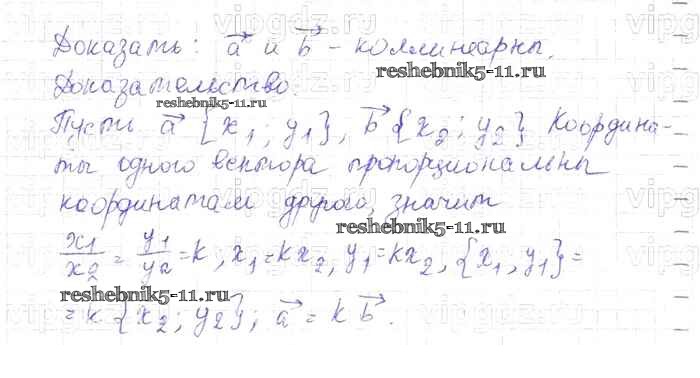 Доказать: a⃗ и b⃗ - коллинеарны.
reshebnik5-11.ru
Доказательство.
reshebnik5-11.ru
Пусть a⃗ {x₁; y₁}, b⃗ {x₂; y₂} Координа-
ты одного вектора пропорциональны
координатам другого, значит
reshebnik5-11.ru
x₁/x₂ = y₁/y₂ = k; x₁ = kx₂, y₁ = kx₂, {x₁, y₁} =
reshebnik5-11.ru
= k {x₂; y₂}; a⃗ = k b⃗.